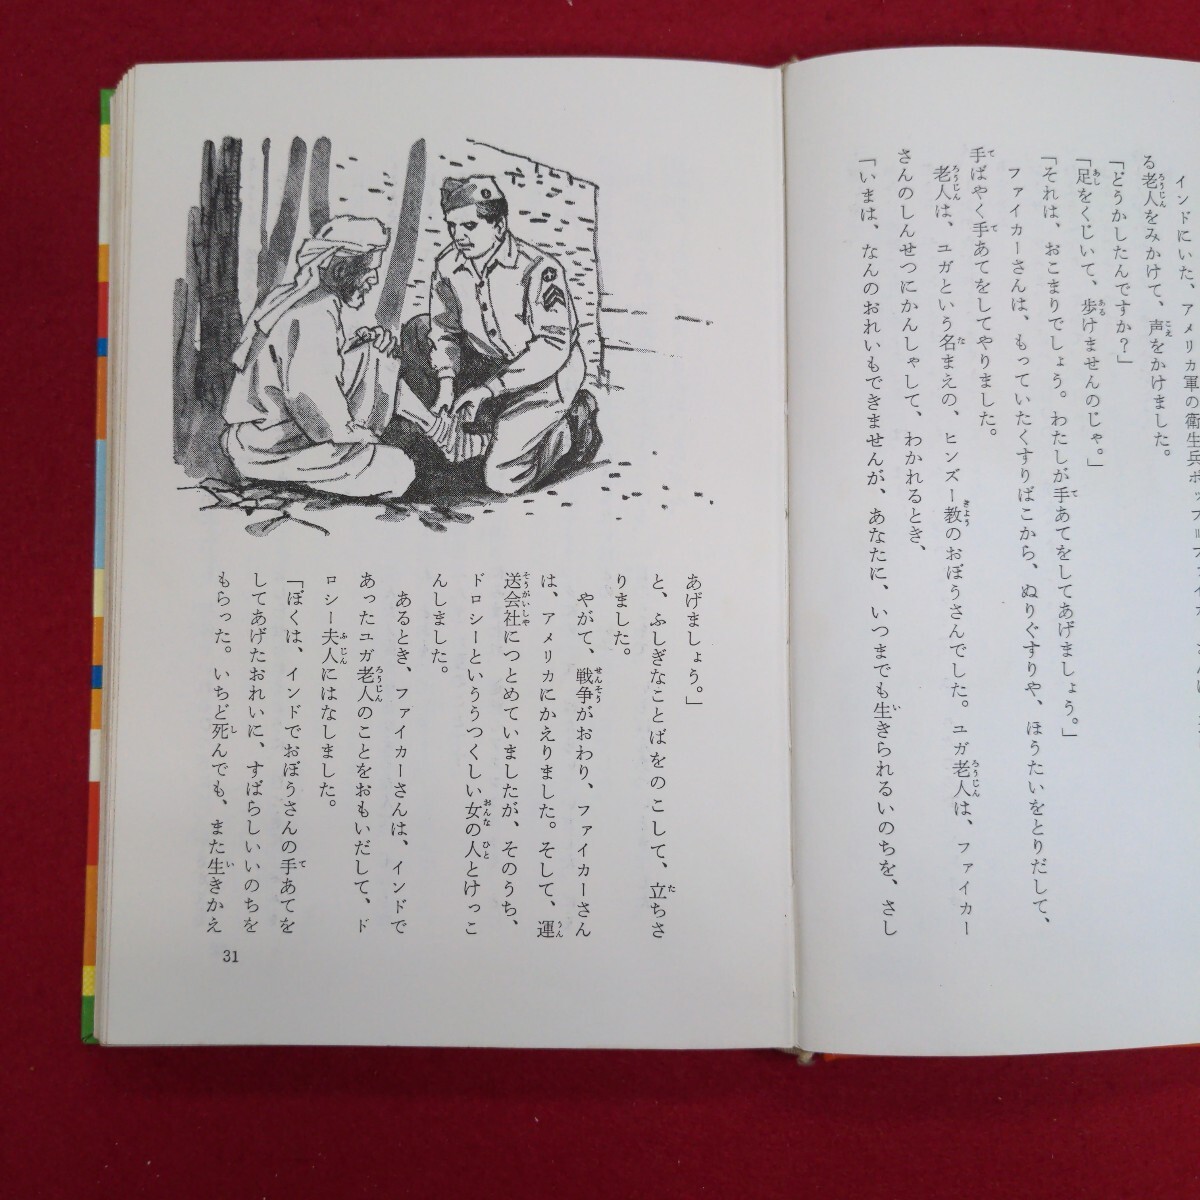 インドにいた、アメリカ軍の衛生兵
る老人をみかけて、声をかけました。
「どうかしたんですか？」
「足をくじいて、歩けませんのじゃ。」
「それは、おこまりでしょう。わたしが手あてをしてあげましょう。」
ファイカーさんは、もっていたくすりばこから、ぬりぐすりや、ほうたいをとりだして、
手ばやく手あてをしてやりました。
老人は、ユガという名まえの、ヒンズー教のおぼうさんでした。ユガ老人は、ファイカー
さんのしんせつにかんしゃして、わかれるとき、
「いまは、なんのおれいもできませんが、あなたに、いつまでも生きられるいのちを、さし
あげましょう。」
と、ふしぎなことばをのこして、立ちさ
りました。
やがて、戦争がおわり、ファイカーさん
は、アメリカにかえりました。そして、運
送会社につとめていましたが、そのうち、
ドロシーといううつくしい女の人とけっこ
んしました。
あるとき、ファイカーさんは、インドで
あったユガ老人のことをおもいだして、ド
ロシー夫人にはなしました。
「ぼくは、インドでおぼうさんの手あてを
してあげたおれいに、すばらしいいのちを
もらった。いちど死んでも、また生きかえ
31